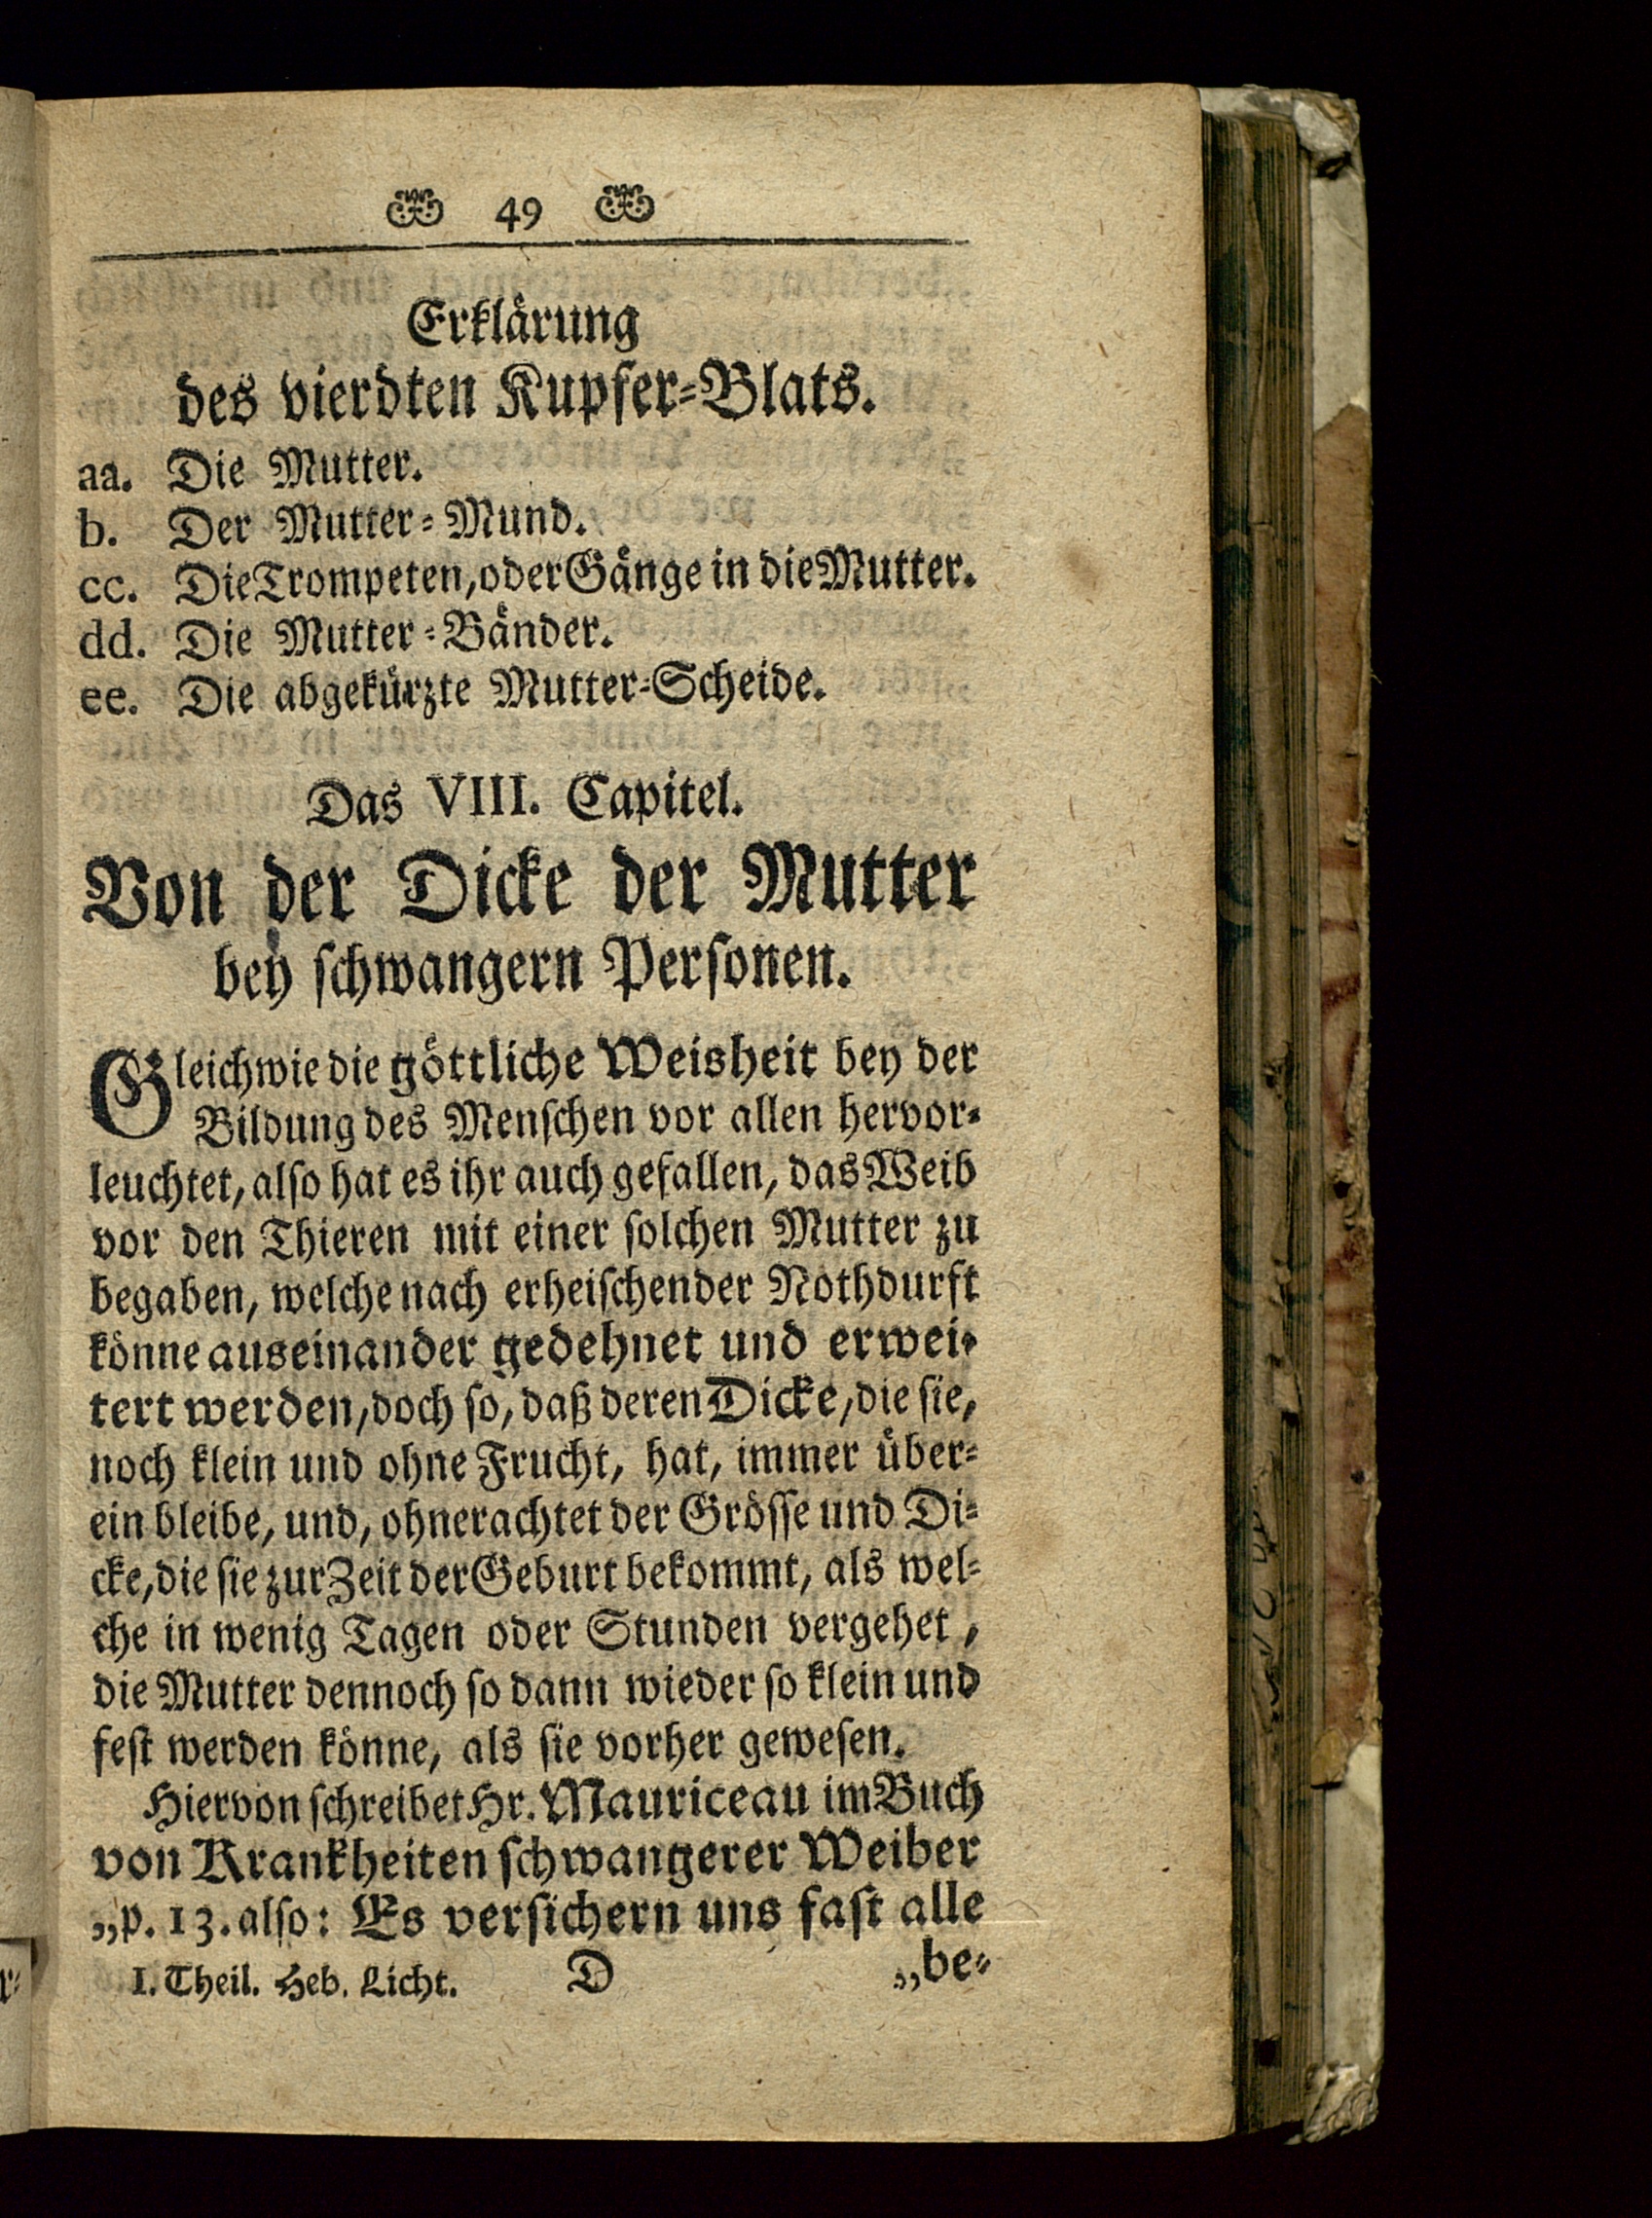 49
Erklärung
des vierdten Kupfer-Blats.
aa. Die Mutter.
b. Der Mutter-Mund.
cc. Die Trompeten, oder Gänge in die Mutter.
dd. Die Mutter-Bänder.
ee. Die abgekürzte Mutter-Scheide.
Das VIII. Capitel.
Von der Dicke der Mutter
bey schwangern Personen.
Gleichwie die göttliche Weisheit bey der
Bildung des Menschen vor allen hervor-
leuchtet, also hat es ihr auch gefallen, das Weib
vor den Thieren mit einer solchen Mutter zu
begaben, welche nach erheischender Nothdurft
könne auseinander gedehnet und erwei-
tert werden, doch so, daß deren Dicke, die sie,
noch klein und ohne Frucht, hat, immer über-
ein bleibe, und, ohnerachtet der Grösse und Di-
cke, die sie zur Zeit der Geburt bekommt, als wel-
che in wenig Tagen oder Stunden vergehet,
die Mutter dennoch so dann wieder so klein und
fest werden könne, als sie vorher gewesen.
Hiervon schreibet Hr. Mauriceau im Buch
von Krankheiten schwangerer Weiber
„p. 13. also: Es versichern uns fast alle
I. Theil. Heb. Licht. D „be-